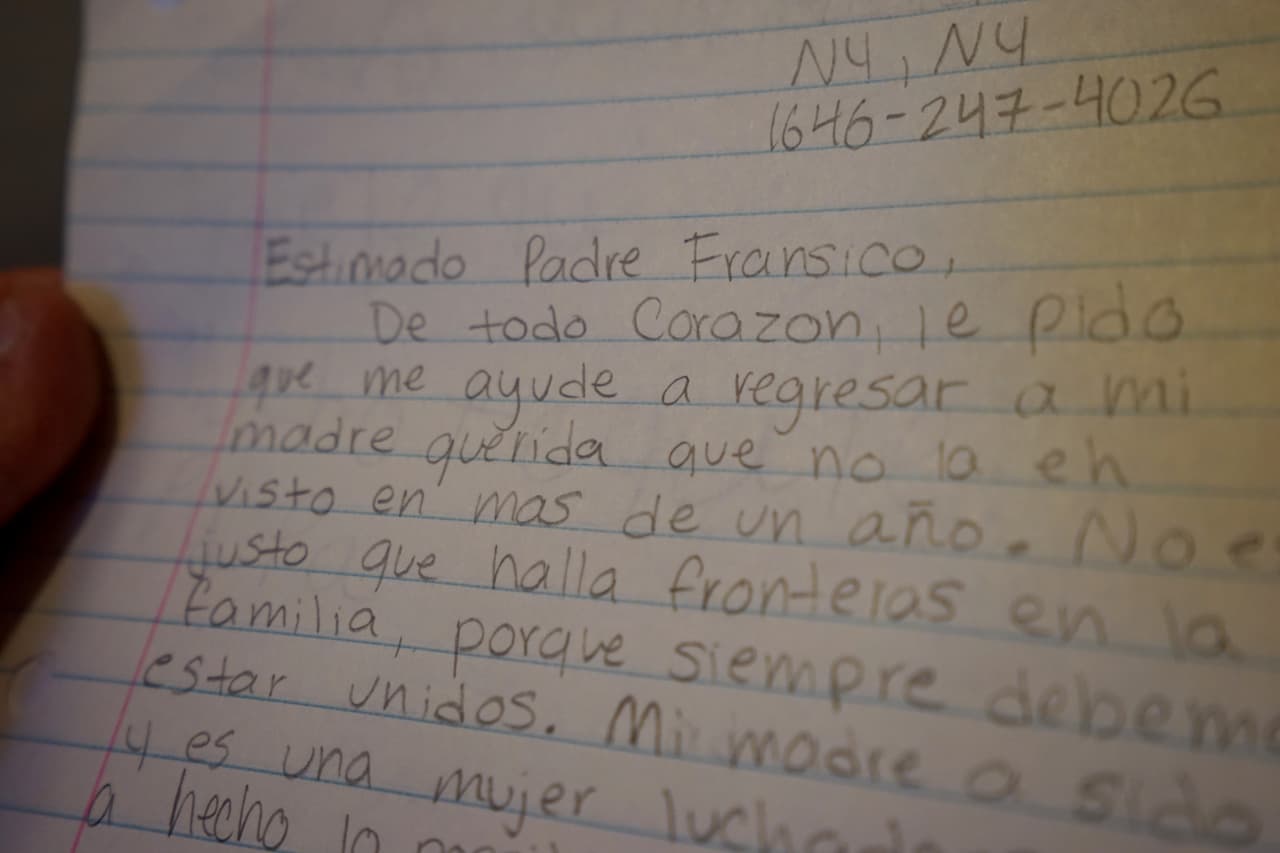 NY, NY
1646-247-4026
Estimado Padre Fransico,
De todo Corazon, le pido
que me ayude a regresar a mi
madre querida que no la eh
visto en mas de un año. No es
justo que halla fronteras en la
familia, porque siempre debemo
estar unidos. Mi madre a sido
y es una mujer
a hecho lo